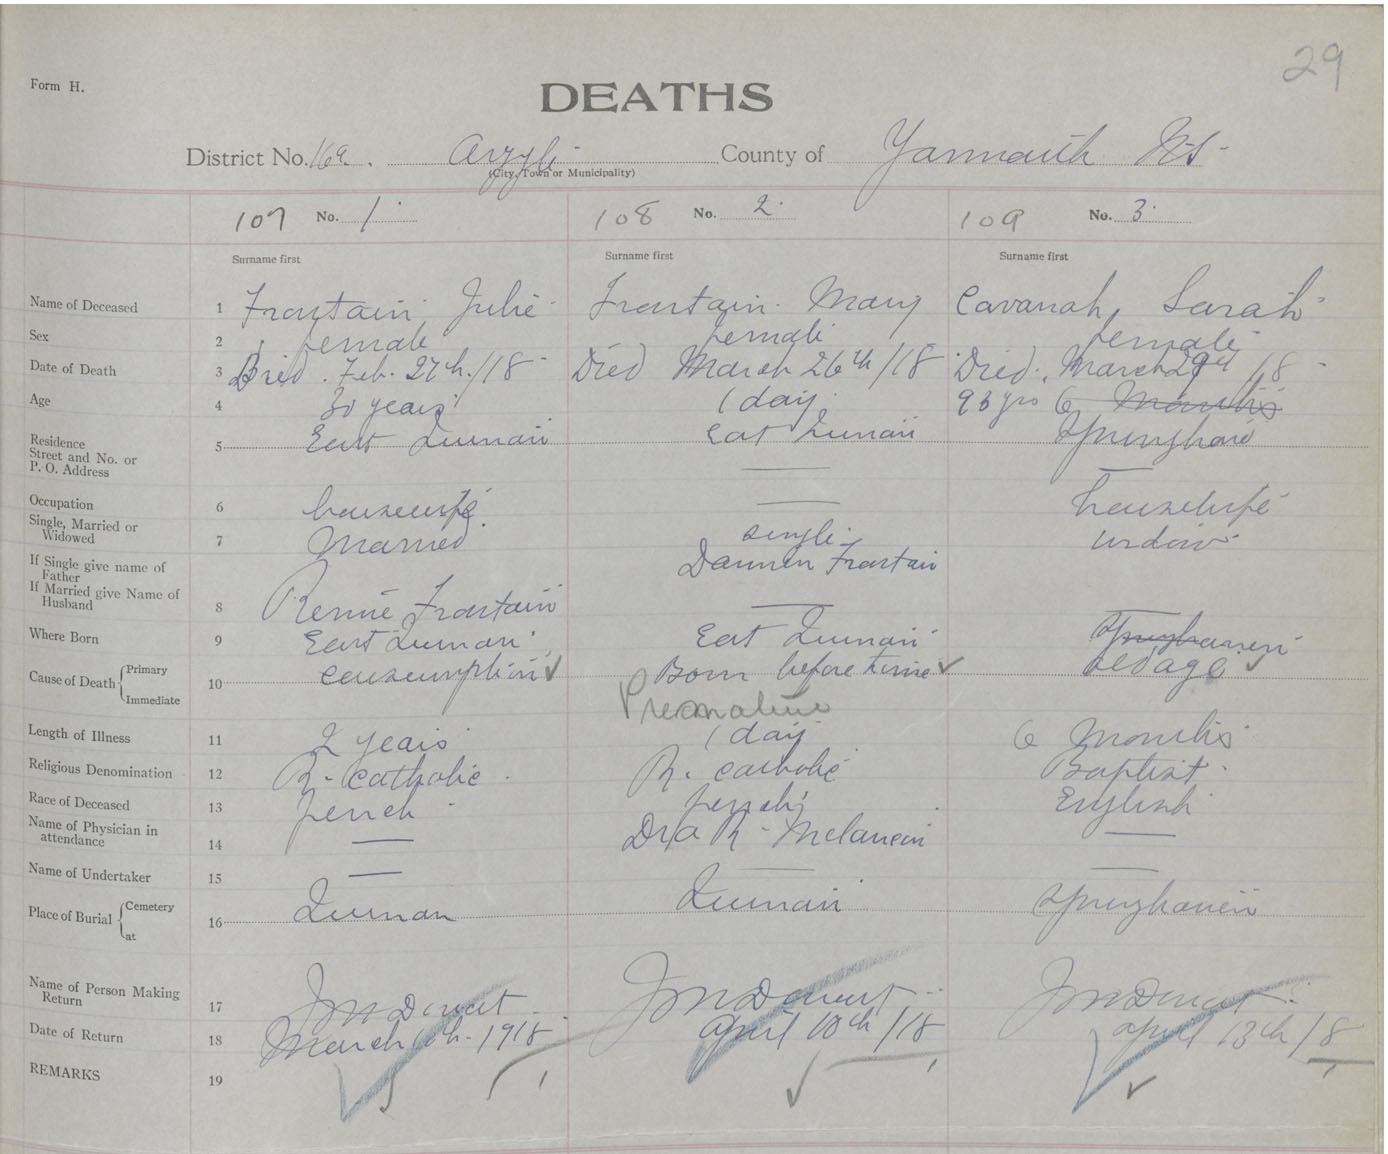 29
Form H.
DEATHS
District No. 16a. Argyle County of Yarmouth N.S.
(City, Town or Municipality)
107 No. 1. 108 No. 2. 109 No. 3.
Surname first Surname first Surname first
Name of Deceased 1 Frontain, Julie Frontain. Mary Cavanah, Sarah
Sex 2 female female female
Date of Death 3 Died. Feb. 27th./18 Died March 26th/18 Died. March 29th /18
Age 4 30 years 1 day. 93 yrs 6 Months
Residence
Street and No. or
P. O. Address 5 East Quinan East Quinan Springhaven
Occupation 6 housewife. — housewife
Single, Married or
Widowed 7 Married single. widow
If Single give name of
Father Damien Frontain
If Married give Name of
Husband 8 Remie Frontain — —
Where Born 9 East Quinan East Quinan Springhaven
Cause of Death Primary
Immediate 10 consumption Born before time old age
Premature
Length of Illness 11 2 years 1 day 6 Months
Religious Denomination 12 R. Catholic. R. catholic Baptist.
Race of Deceased 13 french french English
Name of Physician in
attendance 14 — Dr A R. Melancon —
Name of Undertaker 15 — — —
Place of Burial Cemetery
at 16 Quinan Quinan Springhaven
Name of Person Making
Return 17
Date of Return 18 March 6th. 1918 April 10th/18 April 13th/18
REMARKS 19